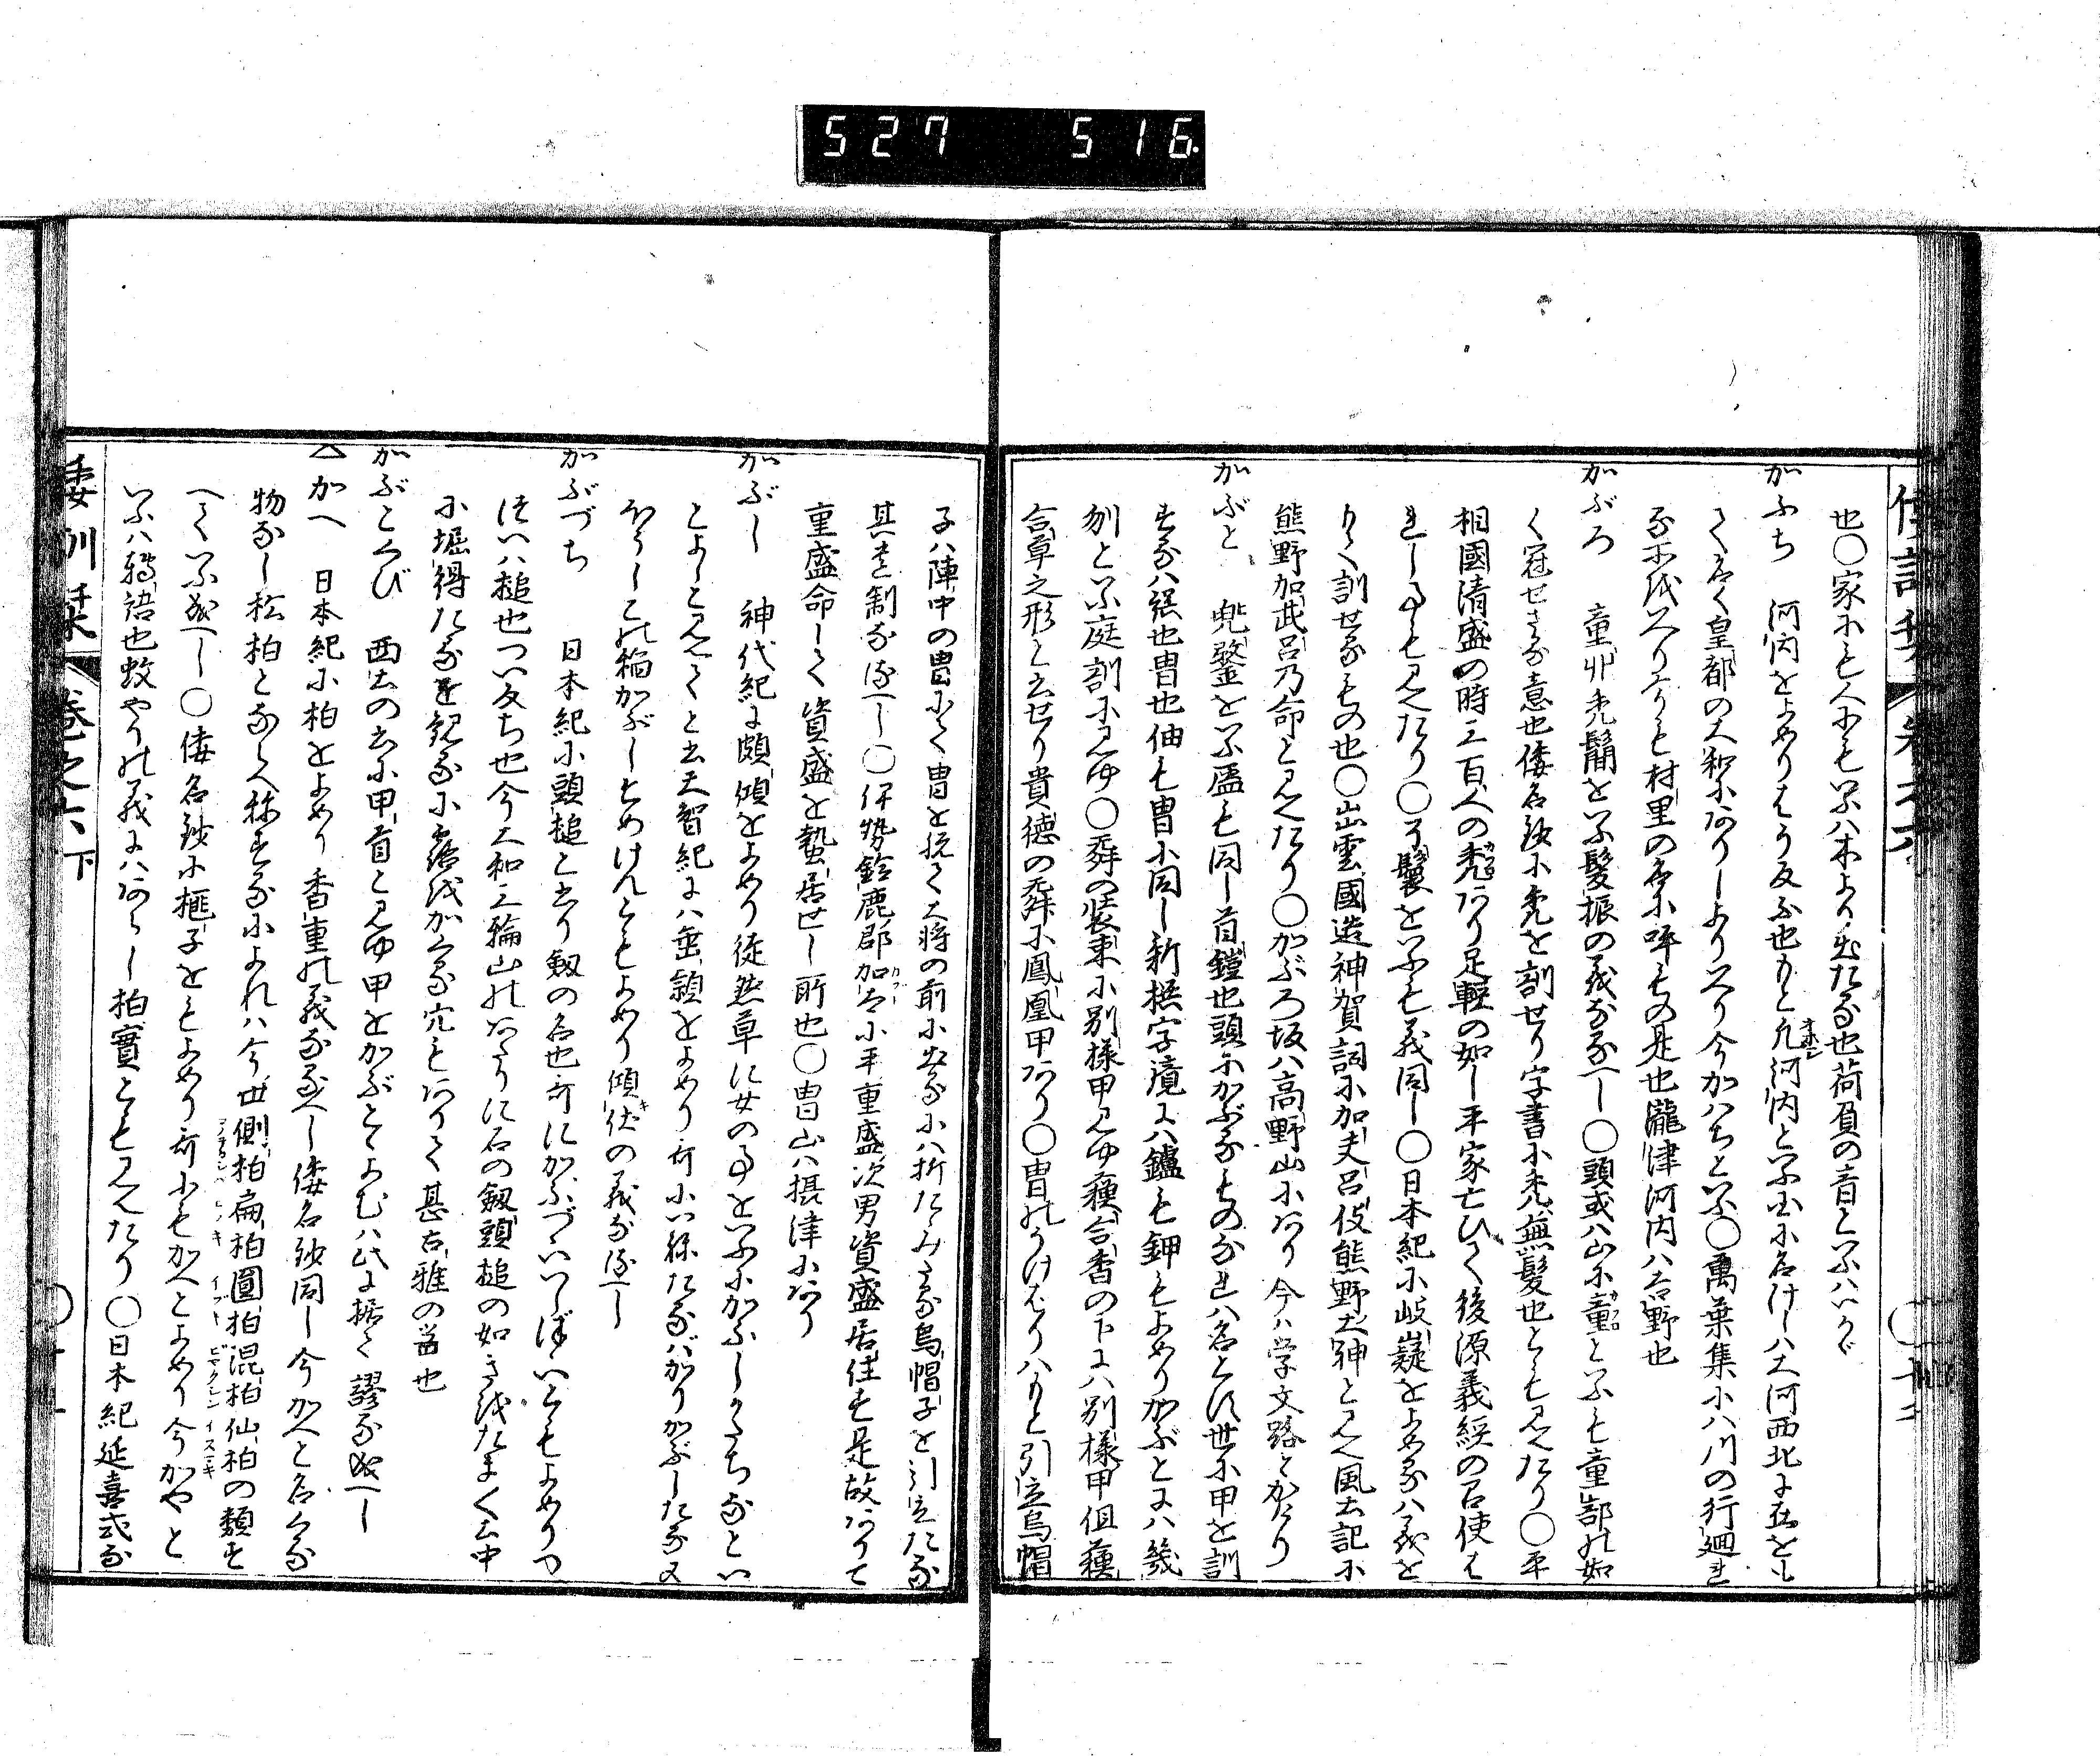 527 516.
倭訓栞 卷之六
也〇家にも人にもいふハ本より出たる也荷負の音といふハいかゞ
かふち 河内をよめりかはうち反ふ也もと凡河内といふ國に名けしハ大河西北に在をもて
名く皇都の大和にありしより又今かハちといふ〇萬葉集に八川の行廻れ
る所をいへりさらも村里の名に呼もの是也瀧津河内ハ吉野也
かぶろ 童丱禿鬜をいふ髪振の義なるべし〇頭或ハ山に童といふも童部の如
く冠せさる意也倭名鈔に禿を訓せり字書に禿ハ無髪也とも見えたり〇平
相國清盛の時三百人の禿あり足軽の如し平家亡ひて後源義經の召使は
れし事も見えたり〇了鬟をいふも義同し〇日本紀に岐嶷をよめるハ義を
もて訓せるもの也〇出雲國造神賀詞に加夫呂伎熊野大神と見え風土記に
熊野加武呂乃命と見えたり〇かぶろ坂ハ高野山にあり今ハ学文路とかけり
かぶと 兜鍪をいふ盔も同し首鎧也頭にかぶるものなれハ名とす世に甲を訓
するハ誤也冑也伷も冑に同し新撰字鏡にハ鑪も鉀もよめりかぶとにハ幾
刎といふ庭訓に見ゆ〇舞の装束に別様甲見ゆ蘇合香の下にハ別様甲俎蘇
合草之形と云せり貴徳の舞に鳳凰甲あり〇冑のうけはりハもと引立烏帽
子ハ陣中の冑にて冑を脱て大将の前に出るにハ折たみたる烏帽子を引立たる
其を制なるべし〇伊勢鈴鹿郡加太に平重盛次男資盛居住す是故ありて
重盛命して資盛を蟄居せし所也〇冑山ハ摂津にあり
かぶし 神代紀に頗傾をよめり徒然草に女の事をいふにかぶしかたちなとい
とよしと見えて と云天智紀にハ垂頴をよめり哥に小稲たるバかりかぶしたる又
ほうしこの稲かぶしもめけんともよめり傾伏の義なるべし
かぶづち 日本紀に頭槌と云り劔の名也哥にかぶづいつゝほいともよめりつ
ほいハ槌也つい反ち也今大和三輪山のあたりに石の劔頭槌の如きをたま〱土中
に堀得たるを観るに露をかくる穴もありて甚古雅の器也
かぶとくび 西土の書に甲首と見ゆ甲をかぶとゝよむハ此に據て謬る成へし
△かへ 日本紀に柏をよめり香重の義なるべし倭名鈔同し今かへと名くる
物なし松柏とならへ称するによれハ今世側柏扁柏圓柏混柏仙柏の類を
へていふ成へし〇倭名鈔に榧子をもよめり哥にもかへとよめり今かやと
いふハ轉語也蚊やりの義にハあらし柏實とも見えたり〇日本紀延喜式な
倭訓栞 卷之六下